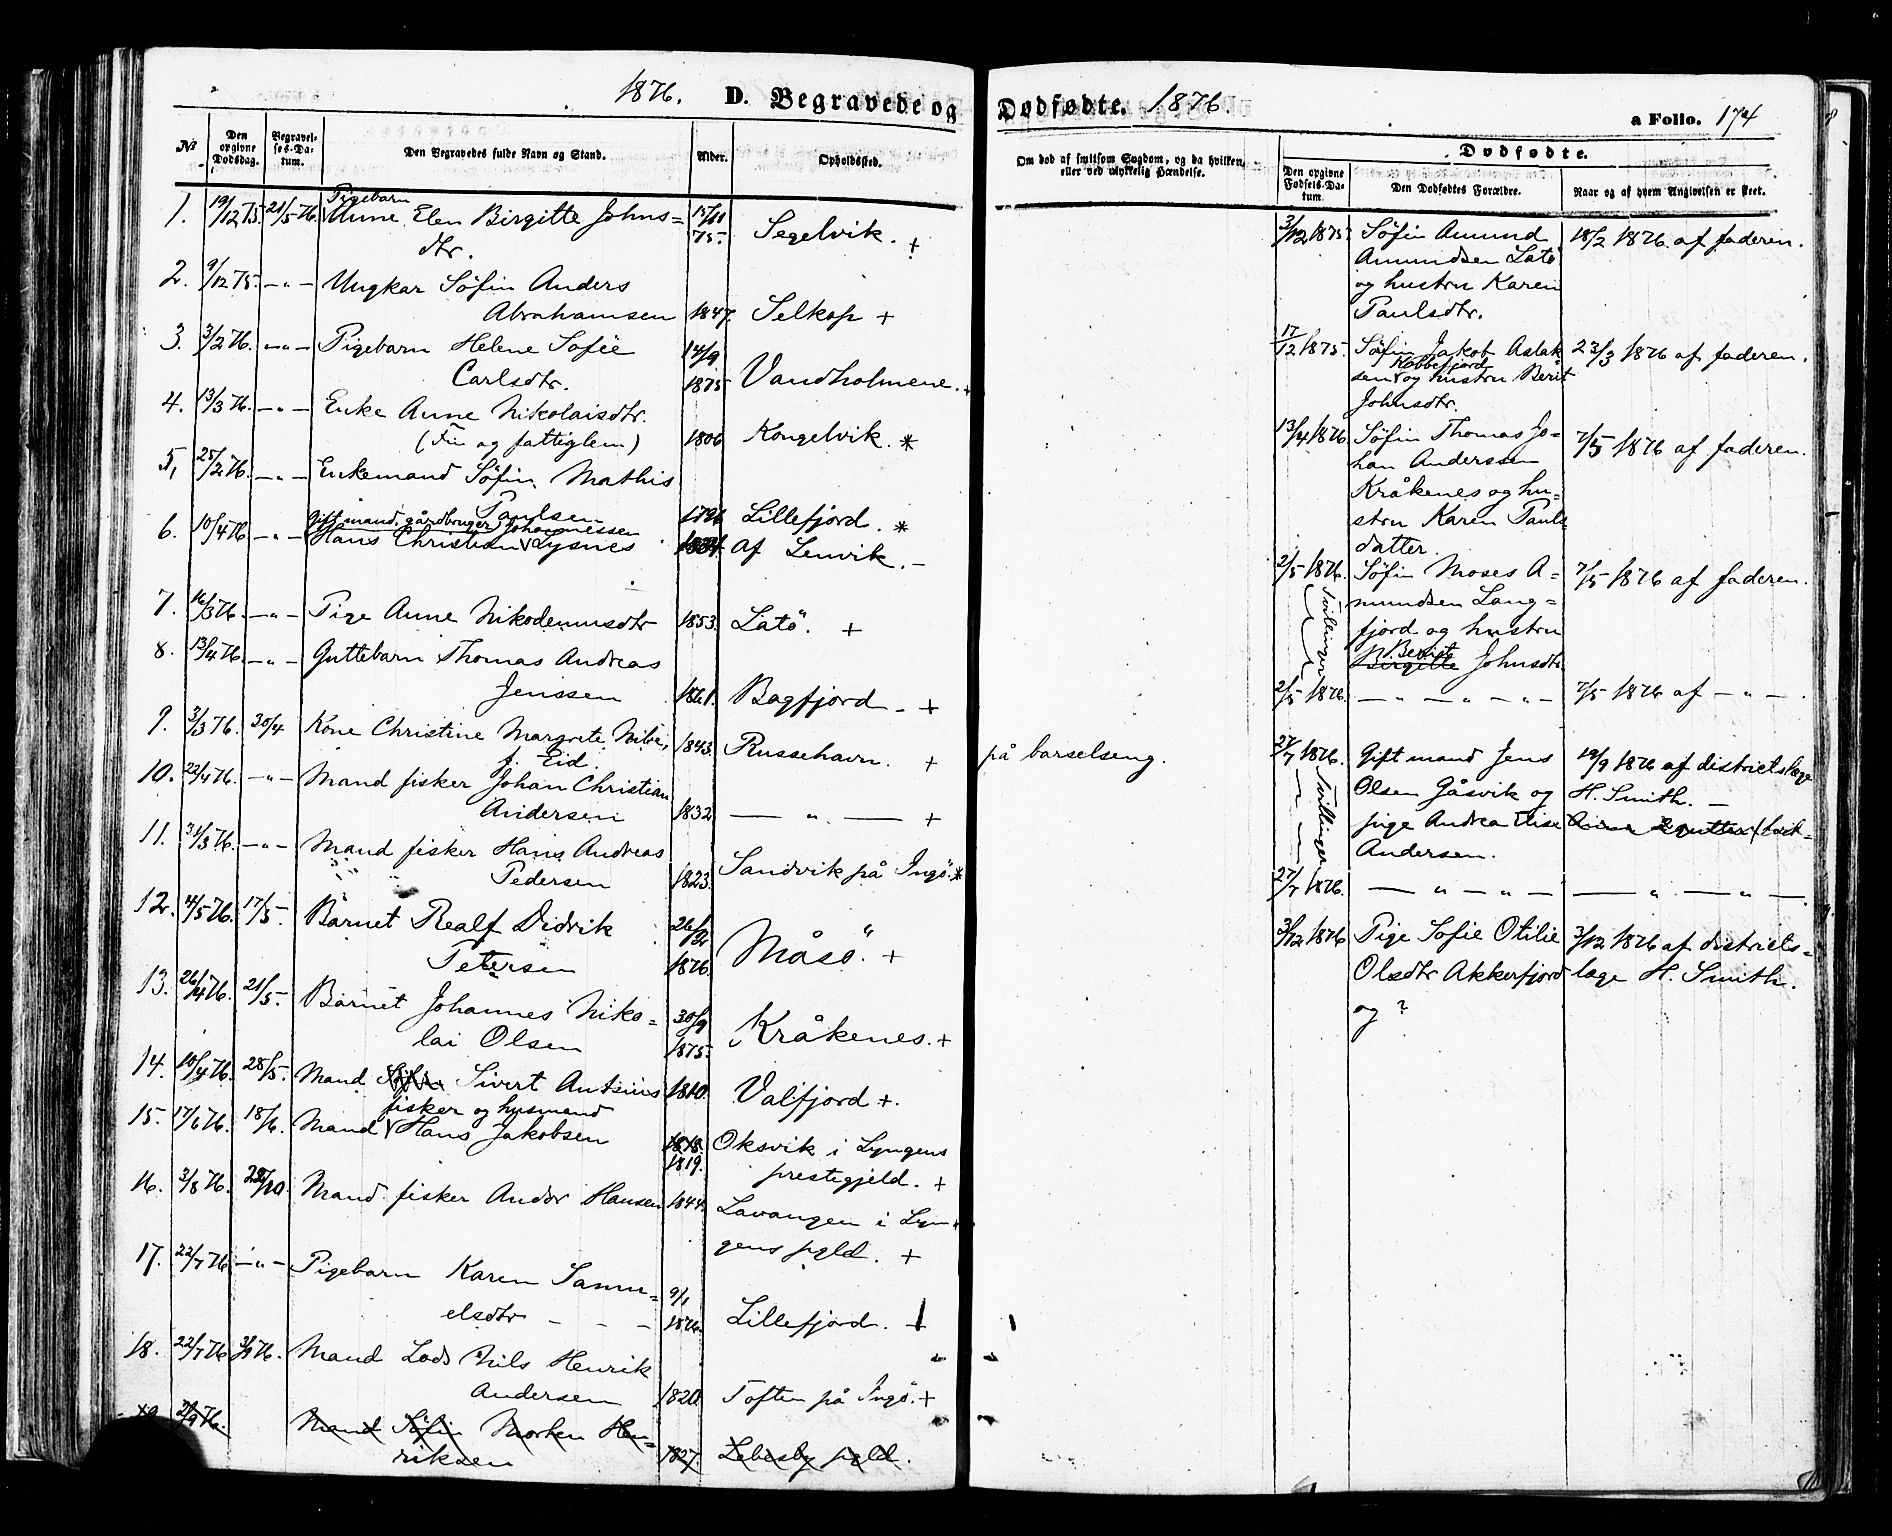 1876. D. Begravede og Dødfødte. 1876.
a Folio. 174
№ Den opgivne Dødsdag. Begravelses-Datum. Den Begravedes fulde Navn og Stand. Alder. Opholdssted.
Om død af smitsom Sygdom, og da hvilken, eller ved ulykkelig Hændelse.
Dødfødte.
Den opgivne Fødsels-Datum. Den Dødfødtes Forældre. Naar og af hvem Angivelsen er skeet.
Pigebarn
1. 19/12 75. 21/5 76. Anne Elen Birgitte Johns= 15/11 75. Segelvik. +
dtr.
2. 9/12 75. —„— Ungkar Søfin Anders
Abrahamsen 1847. Selkop +
3. 3/2 76. —„— Pigebarn Helene Sofie 14/9
Carlsdtr. 1875 Vandholmene. +
4. 13/3 76. —„— Enke Anne Nikolaisdtr.
(Fin og fattiglem) 1806 Kongelvik. *
5, 25/2 76. —„— Enkemand Søfin Mathis
Paulsen 1796 Lillefjord. *
Gift mand, gårdbruger, Johannessen
6. 10/4 76 —„— Hans Christian Lysnes 1834. af Lenvik. —
7. 16/3 76. —„— Pige Anne Nikodemusdtr 1853. Latö. +
8. 13/4 76. —„— Guttebarn Thomas Andreas
Jenssen 1861. Bagfjord — +
9. 3/3 76. 30/4 Kone Christine Margrete Nilse, 1843. Russehavn. + på barselseng.
f. Eid.
10. 22/4 76. —„— Mand fisker Johan Christian
Andersen 1832 — „ — +
11. 31/3 76. —„— Mand fisker Hans Andreas
Pedersen 1823. Sandvik på Ingö. *
12. 4/5 76. 17/5. Barnet Realf Didrik 26/2
Petersen 1876. Måsö. +
13. 26/4 76. 21/5. Barnet Johannes Niko= 30/9
lai Olsen 1875. Kråkenes. +
14. 10/4 76. 28/5. Mand Søfin Sivert Antonius 1810. Valfjord +.
fisker og husmand
15. 17/6 76. 18/6. Mand Hans Jakobsen 1818. Oksvik i Lyngens
1819. prestegjeld. +
16. 3/8 76. 22/10. Mand fisker Andor Hansen 1844. Lavangen i Lyn=
gens pgld. +
17. 22/7 76 —„— Pigebarn Karen Samu= 9/1
elsdtr — — — 1876. Lillefjord. +
18. 22/7 76 3/9 76. Mand Lods Nils Henrik
Andersen 1820. Toften på Ingö. +
19. 2/9 76. Mand Søfin Morten Hen=
riksen 1827. Lebesby pgld.
3/12 1875. Søfin Amund 18/2 1876. af faderen.
Amundsen Latö
og hustru Karen
Paulsdtr.
17/12 1875. Søfin Jakob Aslak 23/3 1876 af faderen.
Kobbefjord
sen og hustru Berit
Johnsdtr.
13/4 1876. Søfin Thomas Jo= 7/5 1876 af faderen.
han Anderssen
Kråkenes og hu=
stru Karen Pauls
datter.
2/5 1876. Søfin Moses A= 7/5 1876 af faderen.
mundsen Lang=
fjord og hustru
Berit
Birgitte Johnsdtr
Tvillinger
2/5 1876. — „ — „ — „ — 7/5 1876 af — „ — .
27/7 1876. Gift mand Jens 19/9 1876 af districtslæge
Olsen Gåsvik og H. Smith. —
pige Andrea Elise
Andersen.
Tvillinger
27/7 1876. — „ — „ — — „ — „ —.
3/12 1876 Pige Sofie Otilie 3/12 1876 af districts=
Olsdtr Akkerfjord læge H. Smith.
og ?